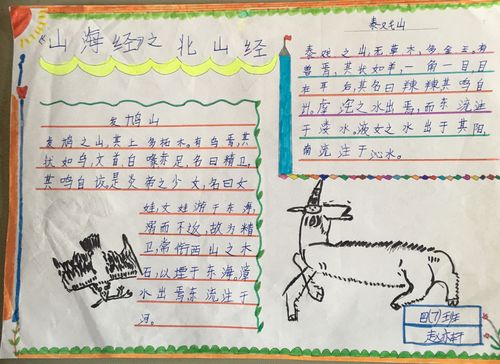 《山海经》之北山经
发鸠山
发鸠之山,其上多柘木。有鸟焉,其
状如乌,文首白喙赤足,名曰精卫,
其鸣自詨。是炎帝之少女,名曰女
娃,女娃游于东海,
溺而不返,故为精
卫,常衔西山之木
石,以堙于东海。漳
水出焉东流注于
河。
泰戏山
泰戏之山,无草木,多金玉,有
兽焉,其状如羊,一角一目,目
在耳后,其名曰䍶䍶其鸣自
之水出焉,而东流注
于溇水。液女之水出于其阳,
南流注于沁水。
四(7)班